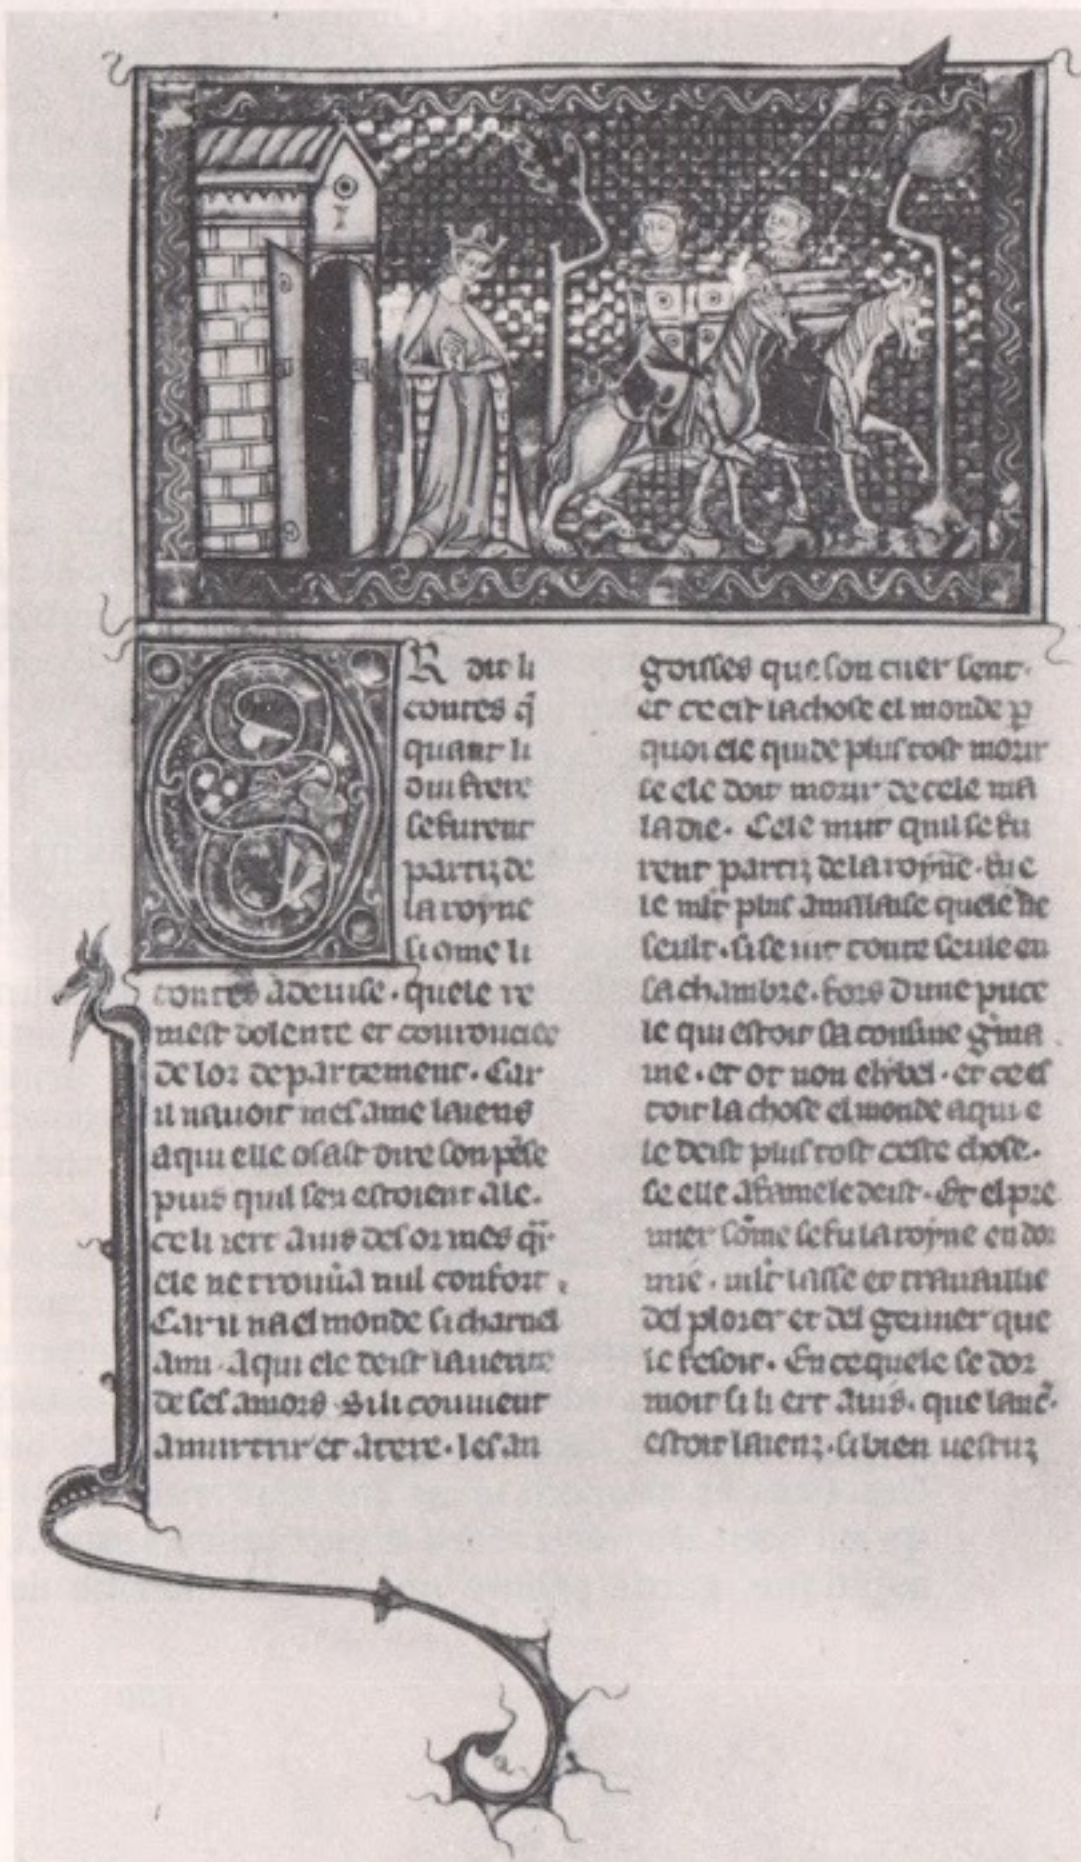 OR dit li
contes q̃
quant li
dui frere
se furent
partiz de
la royne
si ome li
contes a deuise. quele re
mest dolente et courouciee
de lor departement. Car
il nauoit mes ame laiens
a qui elle osast dire son pẽse
puis quil sen estoient ale.
ce li iert auis desormes q̃
ele ne trouũa nul confort.
Car il na el monde si charnel
ami. a qui ele deist la uerite
de ses amors. Si li couuient
amurtrir et atere. les an
goisses que son cuer sent.
et ce est la chose el monde p
quoi ele quide plus tost morir
se ele doit morir de cele ma
ladie. Cele nuit quil se fu
rent partiz de la royne. fu e
le ml̃t plus amalaise quele ne
seult. si se iut toute seule en
sa chambre. fors dune puce
le qui estoit sa cousine g̃ma
ine. et ot non elybel. et ce es
toit la chose el monde a qui e
le deist plus tost ceste chose.
se elle a fame le deist. Et el pre
mier sõme se fu la royne endor
mie. ml̃t lasse et trauaillie
del plorer et del gemir que
le fesoit. En ce quele se dor
moit si li ert auis. que lanc̃.
estoit laienz. si bien uestuz